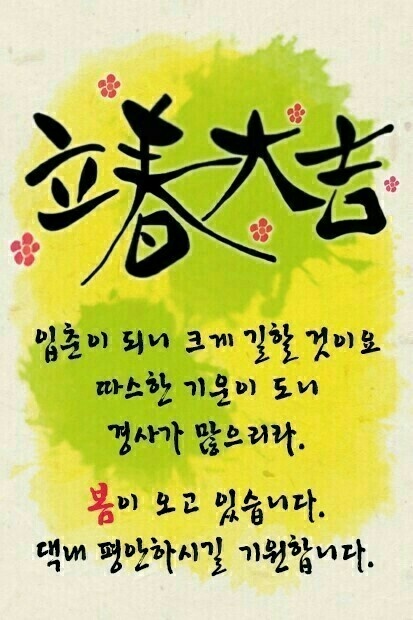 立春大吉
입춘이 되니 크게 길할 것이요
따스한 기운이 도니
경사가 많으리라.
봄이 오고 있습니다.
댁내 평안하시길 기원합니다.